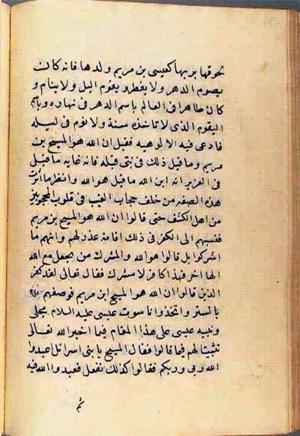 لحوقها بربها كعيسى بن مريم ولدها فانه كان
يصوم الدهر ولا يفطر ويقوم اليل ولا ينام و
كان ظاهرا في العالم باسم الدهر في نهاره وباسم
القيوم الذى لا تاخذه سنة ولا نوم في ليله
فادعى فيه الالوهية فقيل ان الله هو المسيح بن
مريم وما قيل ذلك في نبى قبله فانه غاية ما قيل
في العزير انه ابن الله ما قيل هو الله وانظر ما اثرت
هذه الصفه من خلف حجاب الغيب في قلوب المحجوبين
من اهل الكشف حتى قالوا ان الله هو المسيح بن مريم
فنسبهم الى الكفر في ذلك اقامة عذر لهم وانهم ما
اشركوا بل قالوا هو الله والمشرك من يجعل مع الله
الها اخر فهذا كافر لا مشرك فقال تعالى لقد كفر
الذين قالوا ان الله هو المسيح ابن مريم فوصفهم
بالستر واتخذوا ناسوت عيسى عليه السلام مجلى
ونبيه عيسى على هذا المقام فيما اخبر الله تعالى
تثبيتا لهم فيما قالوا فقال المسيح يا بنى اسرائيل اعبدوا
الله ربى وربكم فقالوا كذلك نفعل فعبدوا الله فيه
ثم